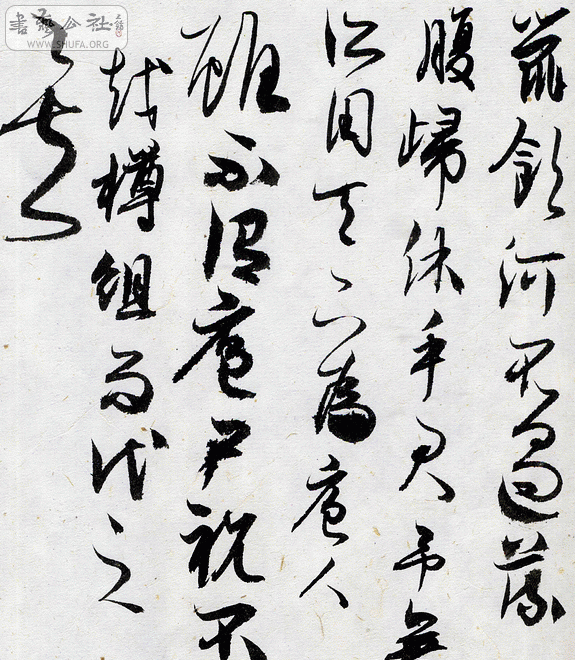 書藝公社
WWW.SHUFA.ORG
鼠飲河不過滿
腹歸休乎君予無
所用天下為庖人
雖不治庖尸祝不
越樽組而代之
矣